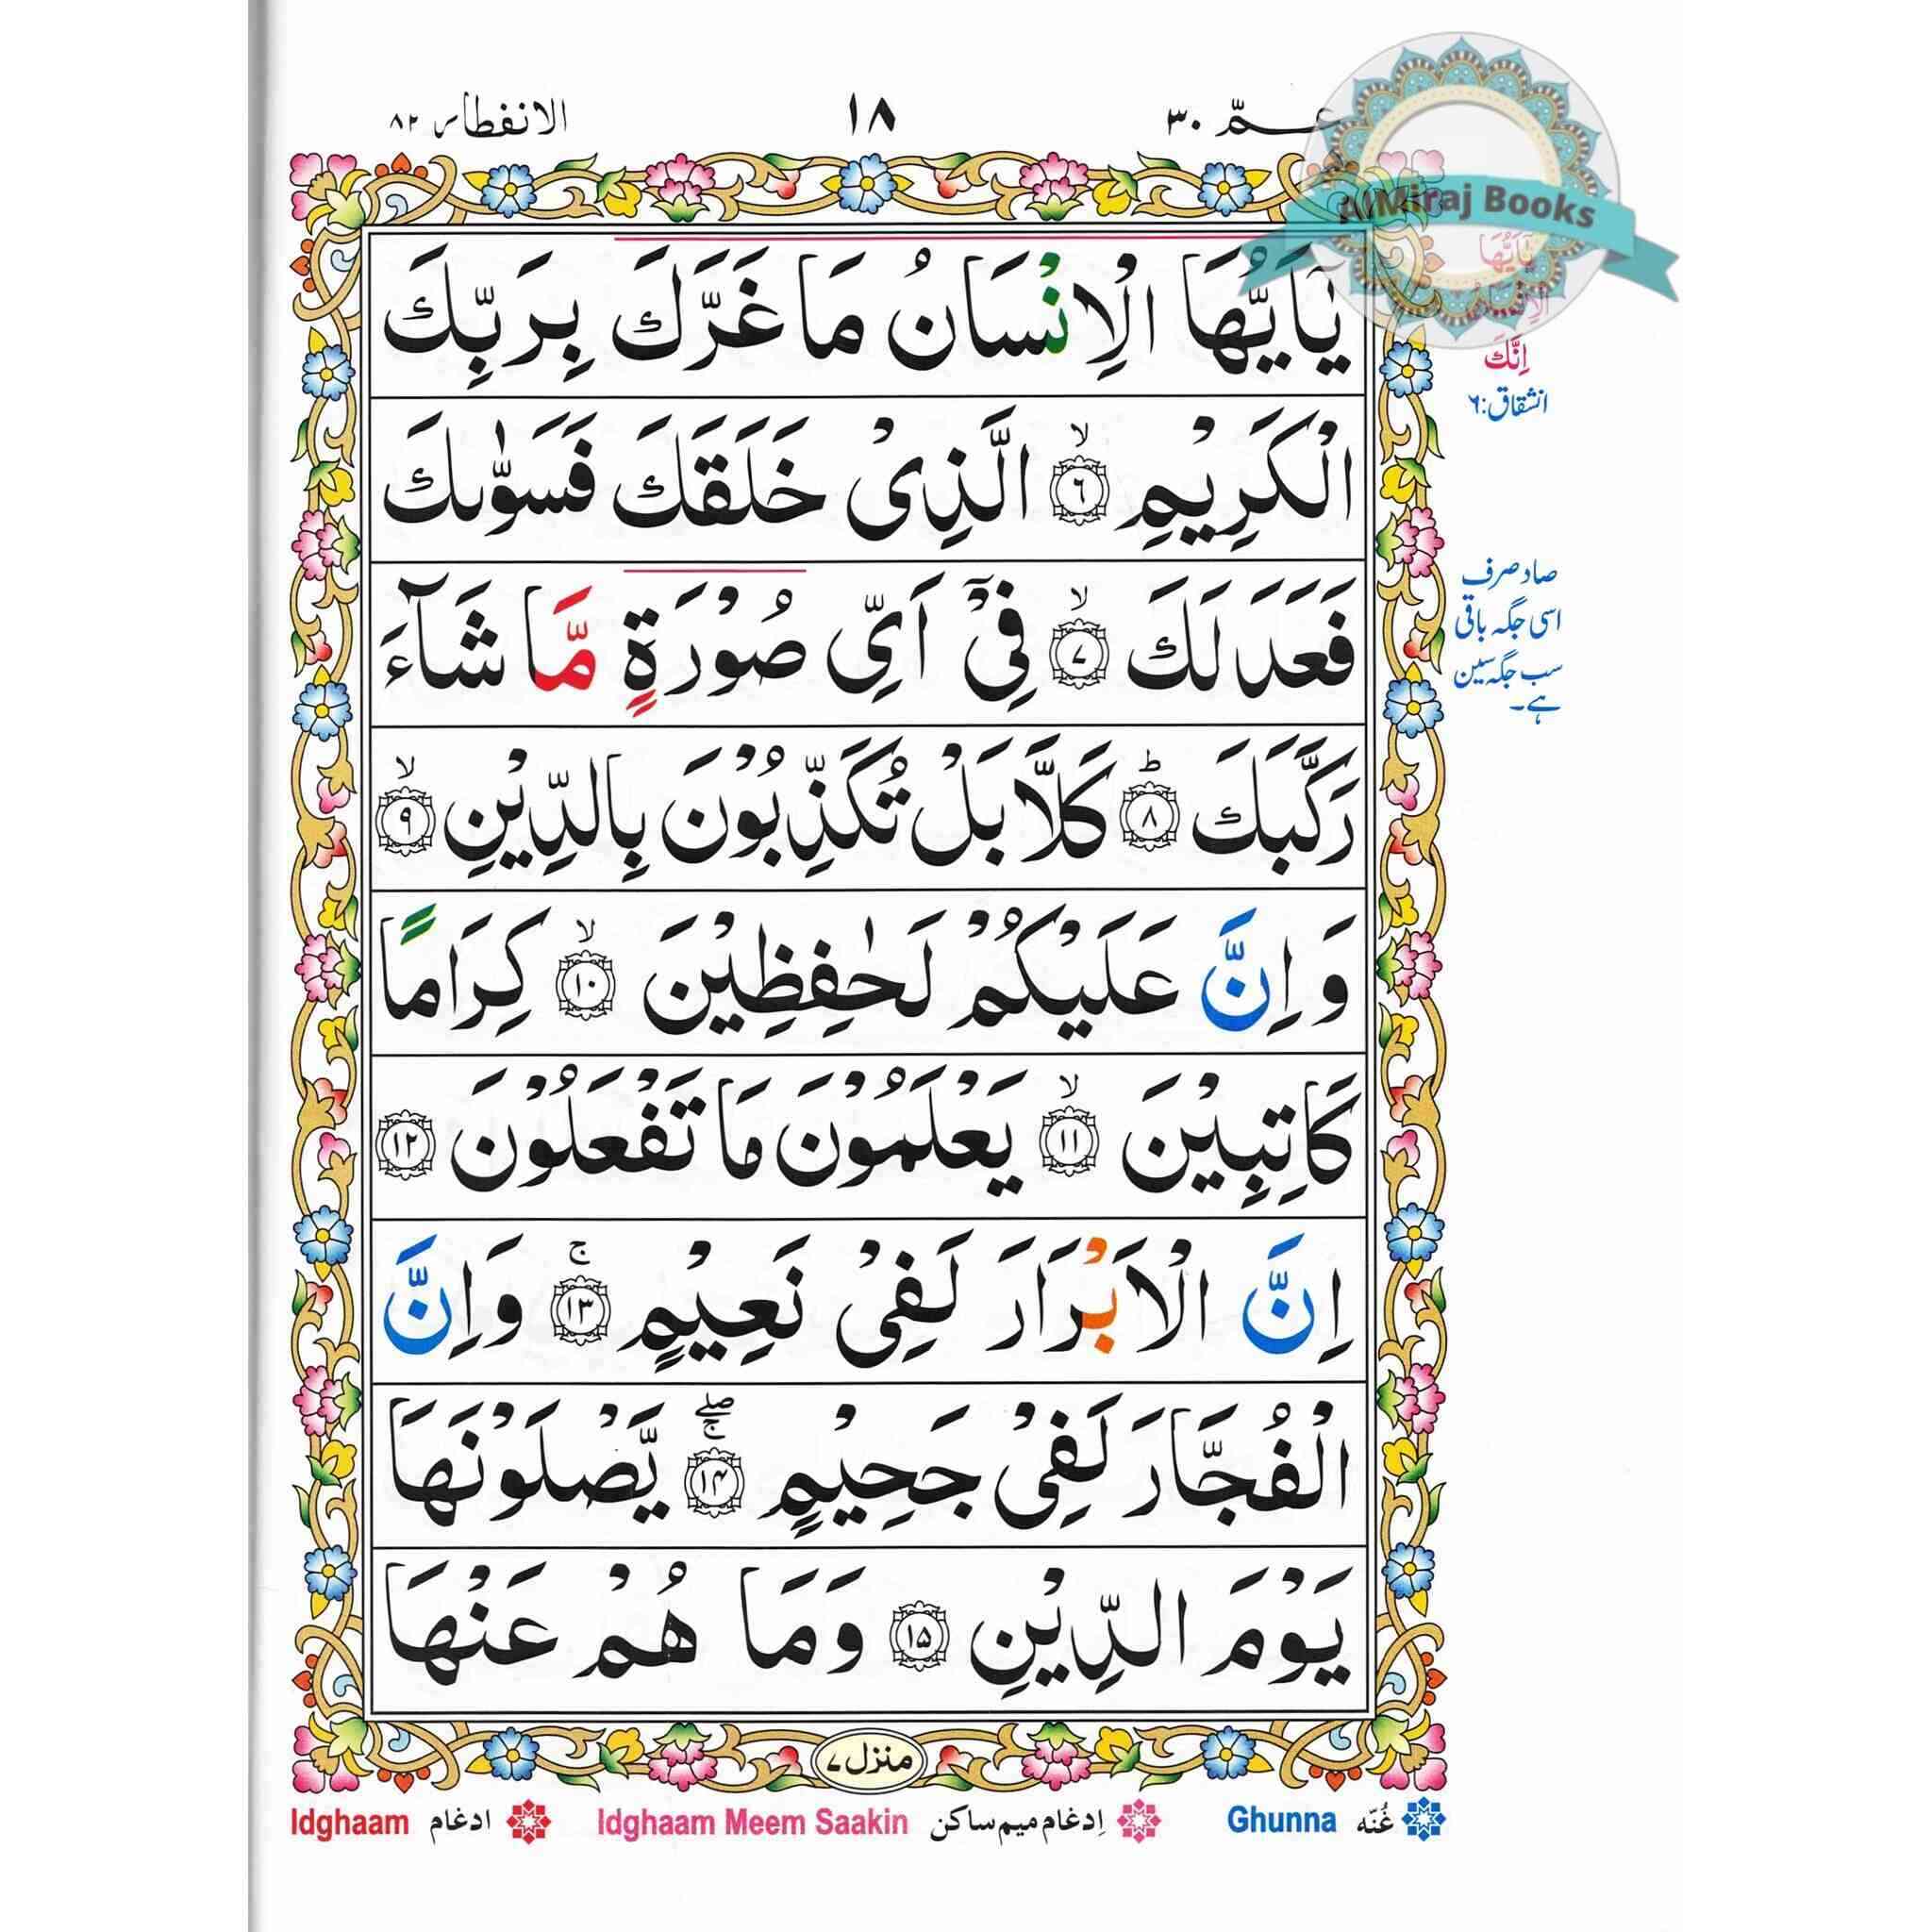 عـمّ ٣٠
١٨
الانفطار ٨٢
AlMiraj Books
يٰۤاَيُّهَا الْاِنْسَانُ مَا غَرَّكَ بِرَبِّكَ
الْكَرِيْمِ ۙ‏﴿٦﴾ الَّذِىْ خَلَقَكَ فَسَوّٰىكَ
فَعَدَلَكَ ۙ‏﴿٧﴾ فِىْۤ اَىِّ صُوْرَةٍ مَّا شَآءَ
رَكَّبَكَ ؕ‏﴿٨﴾ كَلَّا بَلْ تُكَذِّبُوْنَ بِالدِّيْنِ ۙ‏﴿٩﴾
وَاِنَّ عَلَيْكُمْ لَحٰفِظِيْنَ ۙ‏﴿١٠﴾ كِرَامًا
كَاتِبِيْنَ ۙ‏﴿١١﴾ يَعْلَمُوْنَ مَا تَفْعَلُوْنَ ﴿١٢﴾
اِنَّ الْاَبْرَارَ لَفِىْ نَعِيْمٍ ۚ‏﴿١٣﴾ وَاِنَّ
الْفُجَّارَ لَفِىْ جَحِيْمٍ ۖۚ‏﴿١٤﴾ يَّصْلَوْنَهَا
يَوْمَ الدِّيْنِ ﴿١٥﴾ وَمَا هُمْ عَنْهَا
يٰۤاَيُّهَا
الْاِنْسَانُ
اِنَّكَ
انشقاق:٦
صاد صرف
اسی جگہ باقی
سب جگہ سین
ہے۔
منزل ٧
Ghunna غُنّه
Idghaam Meem Saakin اِدغام میم ساکن
Idghaam ادغام